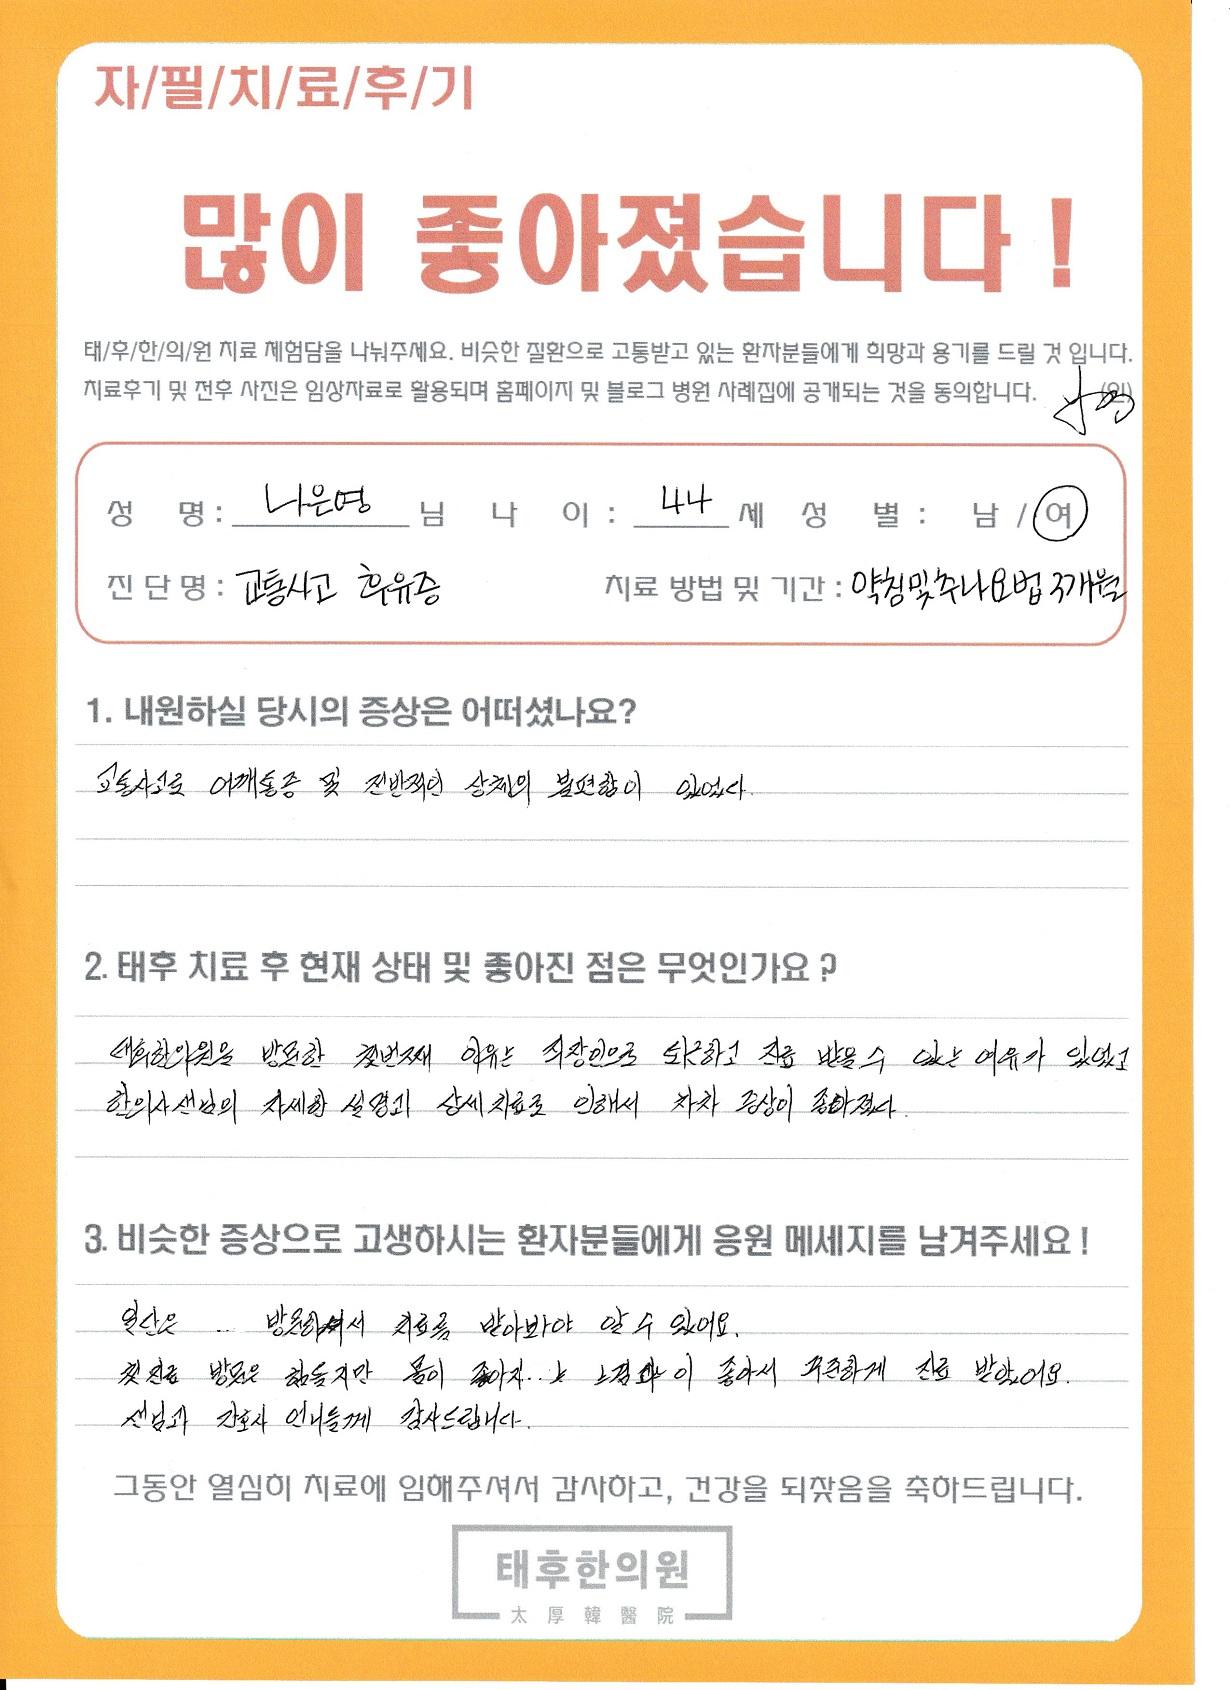 자/필/치/료/후/기
많이 좋아졌습니다!
태/후/한/의/원 치료 체험담을 나눠주세요. 비슷한 질환으로 고통받고 있는 환자분들에게 희망과 용기를 드릴 것 입니다.
치료후기 및 전후 사진은 임상자료로 활용되며 홈페이지 및 블로그 병원 사례집에 공개되는 것을 동의합니다. (인)
성 명 : 나은영 님 나 이 : 44 세 성 별 : 남 / 여
진 단 명 : 교통사고 후유증 치료 방법 및 기간 : 약침및추나요법 3개월
1. 내원하실 당시의 증상은 어떠셨나요?
교통사고로 어깨통증 및 전반적인 상체의 불편함이 있었다.
2. 태후 치료 후 현재 상태 및 좋아진 점은 무엇인가요?
태후한의원을 방문한 첫번째 이유는 직장인으로 퇴근하고 진료 받을 수 있는 여유가 있었고
한의사선님의 자세한 설명과 상세치료로 인해서 차차 증상이 좋아졌다.
3. 비슷한 증상으로 고생하시는 환자분들에게 응원 메세지를 남겨주세요!
일단은 .. 방문하셔서 치료를 받아봐야 알 수 있어요.
첫 진료 방문은 힘들지만 몸이 좋아지..는 이 좋아서 꾸준하게 진료 받았어요.
선님과 간호사 언니들께 감사드립니다.
그동안 열심히 치료에 임해주셔서 감사하고, 건강을 되찾음을 축하드립니다.
태후한의원
太厚韓醫院